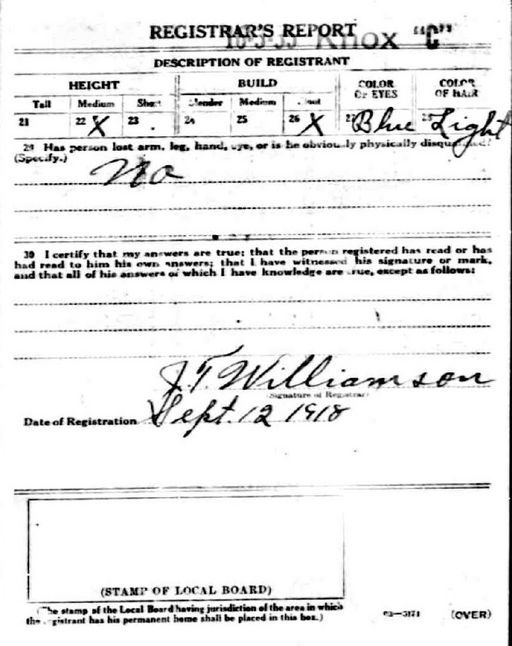 REGISTRAR'S REPORT
10-3-35 Knox "C"
DESCRIPTION OF REGISTRANT
HEIGHT BUILD COLOR OF EYES COLOR OF HAIR
Tall Medium Short Slender Medium Stout
21 22 X 23 24 25 26 X 27 Blue 28 Light
29 Has person lost arm, leg, hand, eye, or is he obviously physically disqualified?
(Specify.)
No
30 I certify that my answers are true; that the person registered has read or has
had read to him his own answers; that I have witnessed his signature or mark,
and that all of his answers of which I have knowledge are true, except as follows:
J. T. Williamson
Signature of Registrar
Date of Registration Sept. 12 1918
(STAMP OF LOCAL BOARD)
(The stamp of the Local Board having jurisdiction of the area in which
the registrant has his permanent home shall be placed in this box.)
03—5171 (OVER)